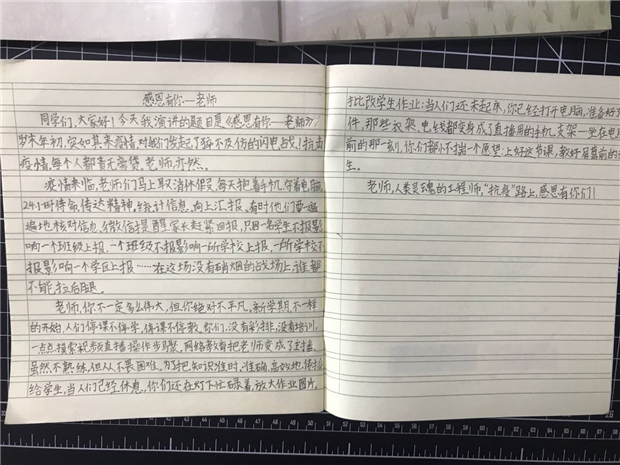 感恩有你—老师
同学们,大家好!今天我演讲的题目是《感恩有你——老师》
岁末年初,突如其来疫情对我们发起了猝不及防的闪电战!抗击
疫情,每个人都责无旁贷。老师亦然。
疫情来临,老师们马上取消休假,每天抱着手机,守着电脑,
24小时待命传达精神,统计信息,向上汇报。有时他们要一遍
遍地核对信息,发微信提醒家长赶紧回报,只因一名学生不报影
响一个班级上报,一个班级不报影响一所学校上报,一所学校不
报影响一个学区上报……在这场没有硝烟的战场上谁都
不能拉后腿。
老师,你不一定多么伟大,但你绝对不平凡。新学期,不一样
的开始,人们停课不停学,停课不停教。你们,没有彩排,没有培训,
一点点摸索视频直播操作步骤,网络教育把老师变成了主播。
虽然不熟练,但从不畏困难。为了把知识准时,准确,高效地
给学生,当人们已经休息,你们还在对着放大作业图片,
批改学生作业;当人们还未起床,你已经打开电脑,准备好
件,那些衣架,电线都变身成了直播用的手机支架,坐在电
前的那一刻,你们都不揣一个愿望:上好这节课,教好屏幕前的
生。
老师,人类灵魂的工程师,“抗疫”路上,感恩有你们!